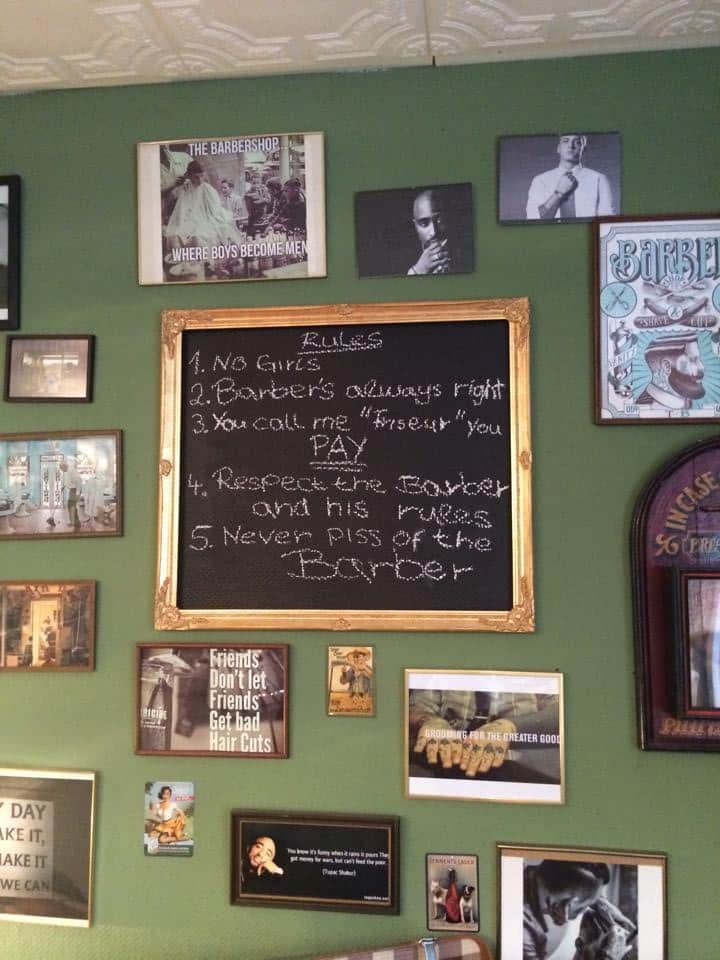 THE BARBERSHOP
WHERE BOYS BECOME MEN
BARBE
SHAVE CUT
Rules
1. No Girls
2. Barber's always right
3. You call me "Friseur" you
PAY
4. Respect the Barber
and his rules
5. Never piss of the
Barber
IN CASE
Friends
Don't let
Friends
Get bad
Hair Cuts
GROOMING FOR THE GREATER GOOD
Y DAY
AKE IT,
MAKE IT
WE CAN
You know it's funny when it rains it pours They
got money for wars, but can't feed the poor.
(Tupac Shakur)